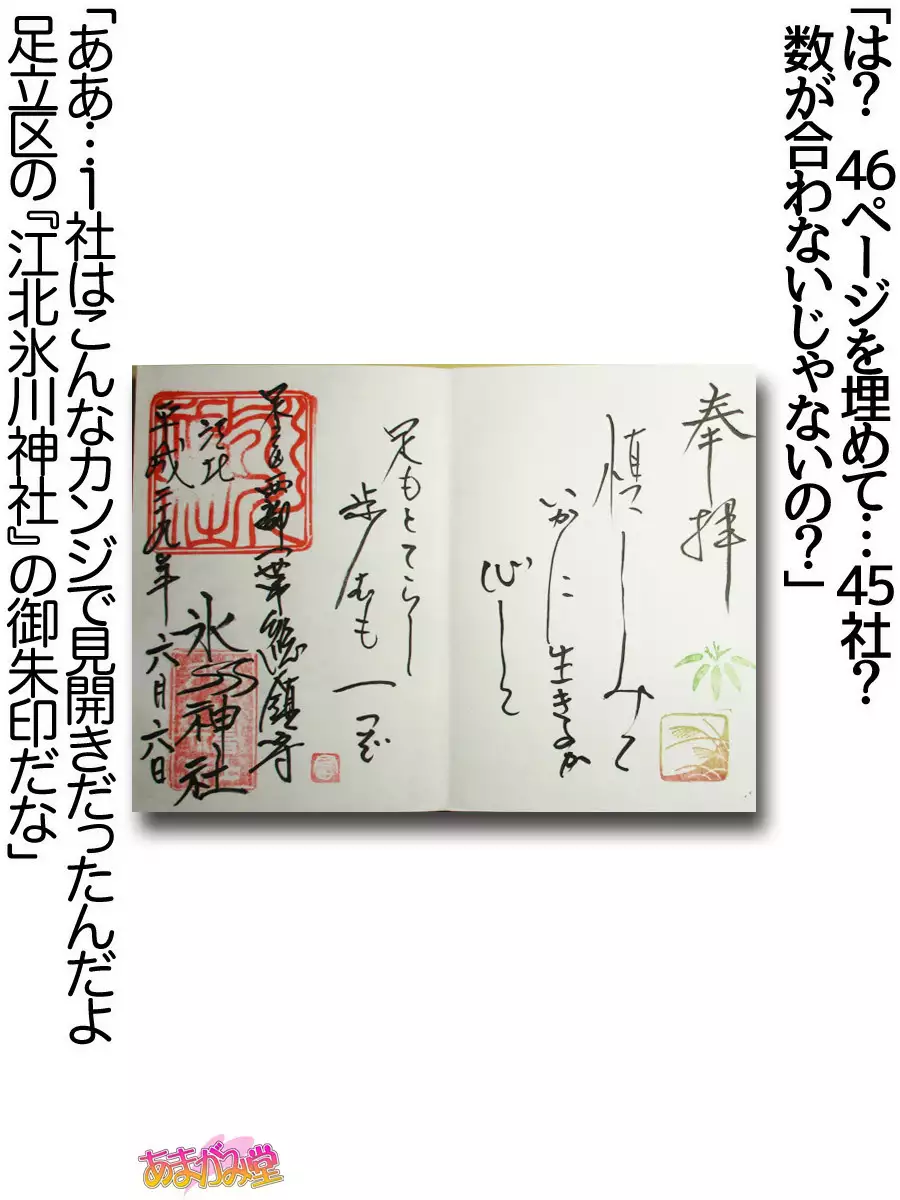 「は? 46ページを埋めて…45社?
数が合わないじゃないの?」
奉拝
慎しみて
いかに生きるか
心して
足もとてらし
歩むも一つ
江北
氷川神社
平成二十九年六月六日
「ああ…1社はこんなカンジで見開きだったんだよ
足立区の『江北氷川神社』の御朱印だな」
あまがみ堂